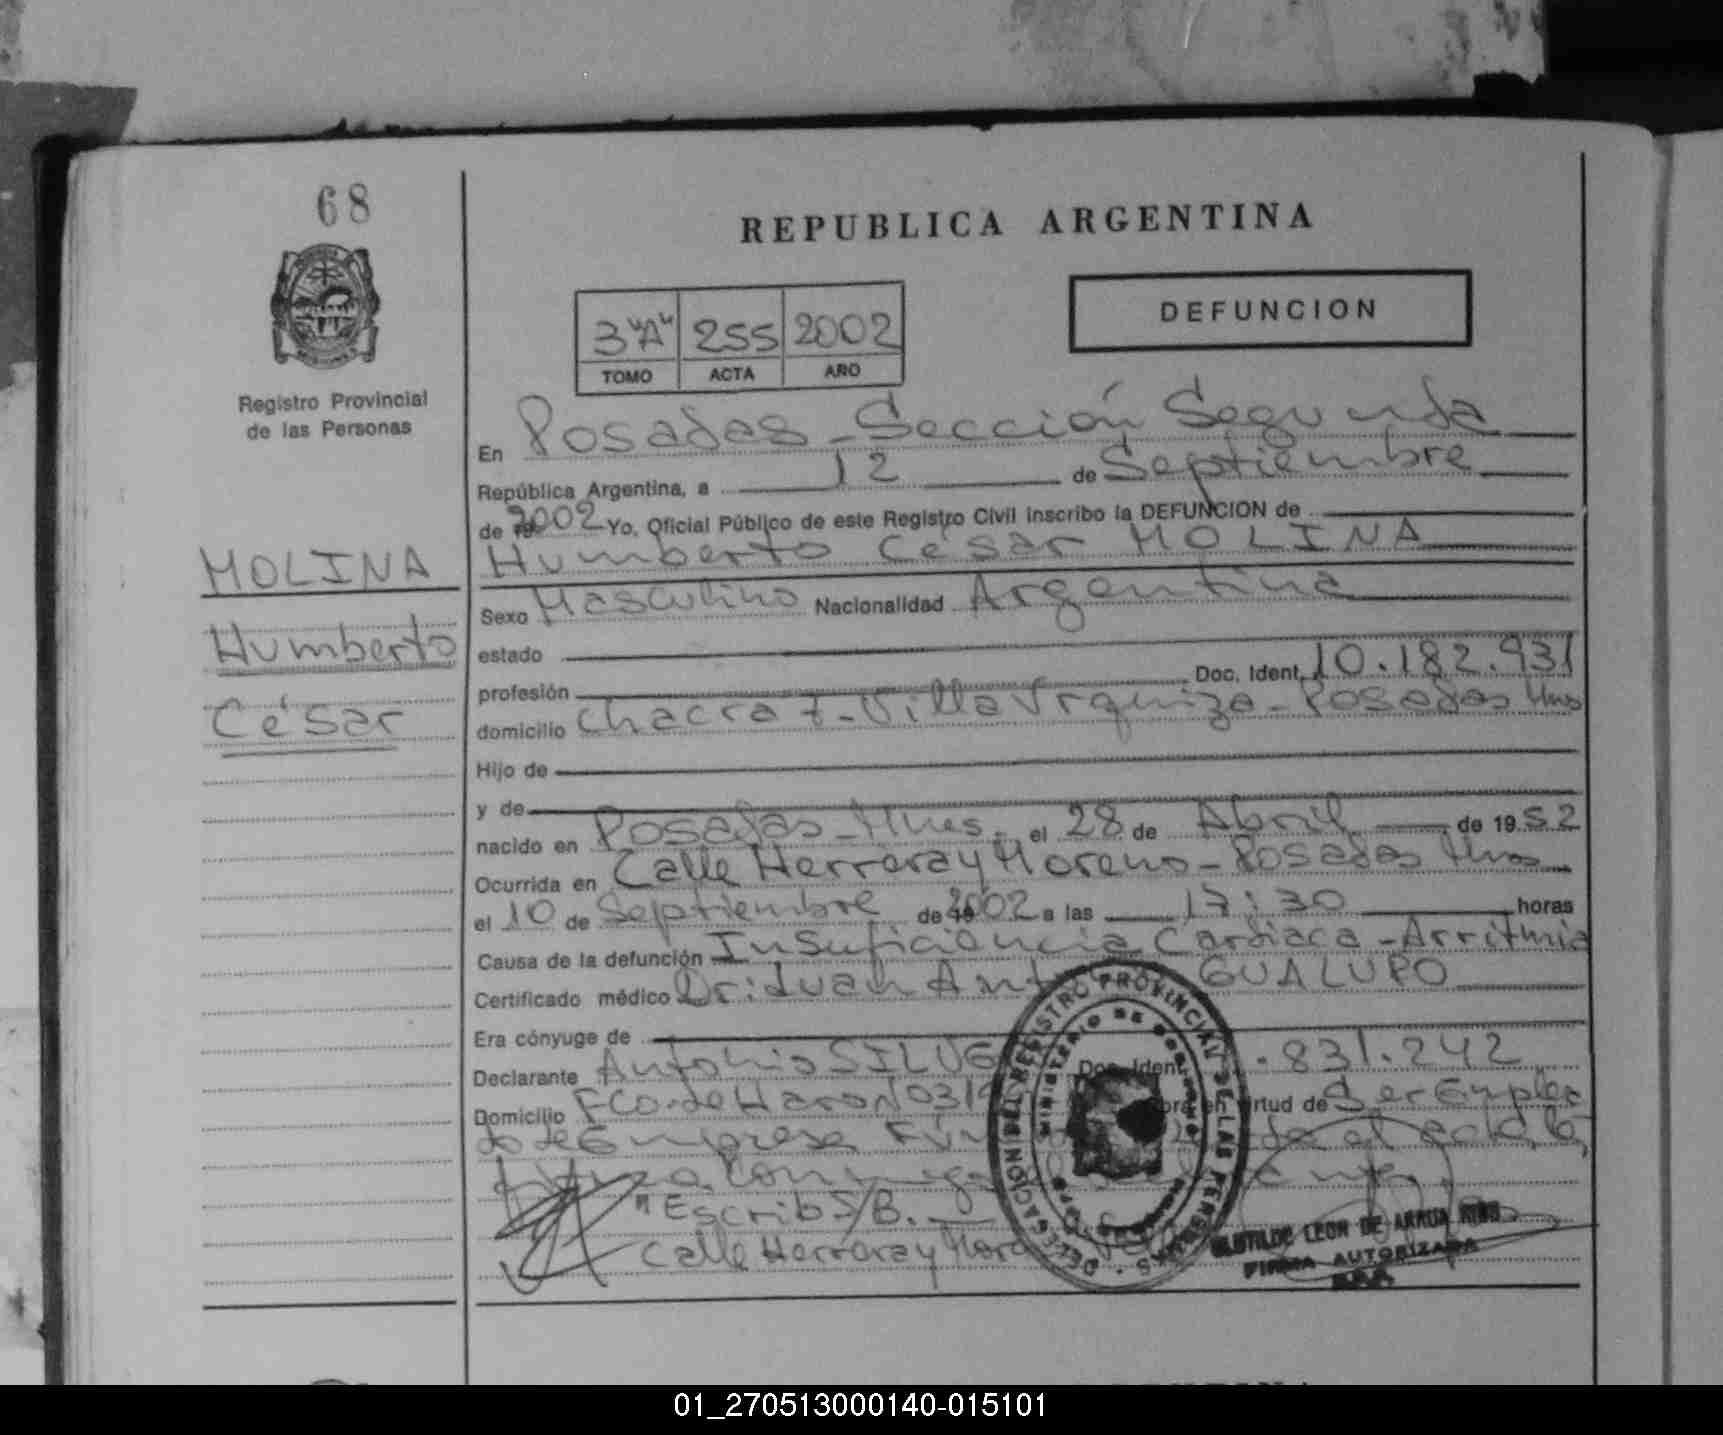 68
REPUBLICA ARGENTINA
Registro Provincial
de las Personas
3"A" 255 2002
TOMO ACTA AÑO
DEFUNCION
MOLINA
Humberto
César
En Posadas - Sección Segunda
República Argentina, a 12 de Septiembre
de 2002 Yo, Oficial Público de este Registro Civil inscribo la DEFUNCION de
Humberto César MOLINA
Sexo Masculino Nacionalidad Argentina
estado
profesión Doc. Ident. 10.182.931
domicilio Chacra 7 - Villa Urquiza - Posadas Mnes
Hijo de
y de
nacido en Posadas - Mnes. el 28 de Abril de 1952
Ocurrida en Calle Herrera y Moreno - Posadas Mnes
el 10 de Septiembre de 2002 a las 17:30 horas
Causa de la defunción Insuficiencia Cardiaca - Arritmia
Certificado médico Dr: Juan GUALUPO
Era cónyuge de
Declarante Antonio Doc. Ident. .831.242
Domicilio Fco. de Haro en virtud de Ser Emplea
do de Empresa el acta, la
firma
"Escrib S/B.
Calle Herrera y
DELEGACION DEL REGISTRO PROVINCIAL DE LAS PERSONAS
MINISTERIO DE GOBIERNO
CLOTILDE LEON DE ARRUA
FIRMA AUTORIZADA
01_270513000140-015101